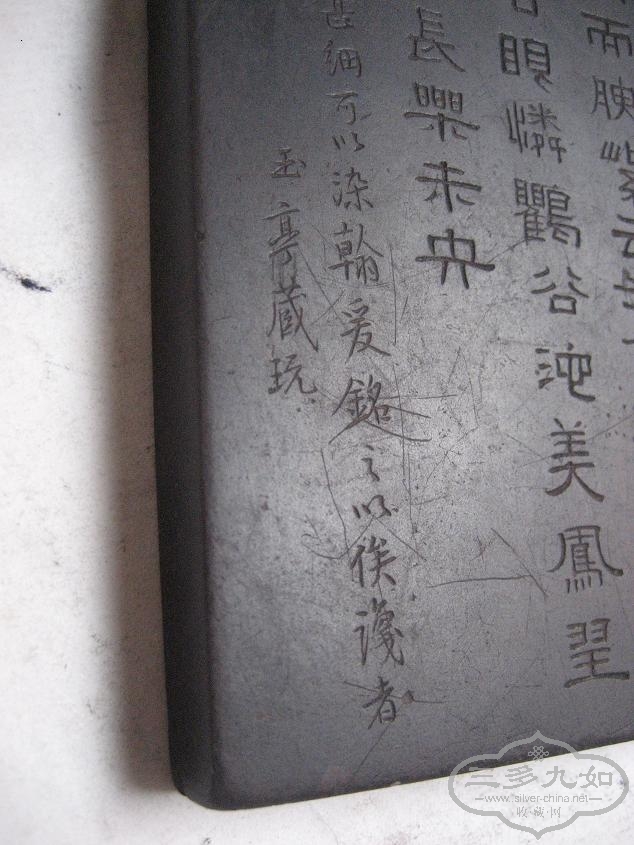 而腴紫云
眼憐鸜谷沲美鳳
長樂未央
甚細可以染翰爰銘之以俟識者
玉亭藏玩
三多九如
www.silver-china.net
收·藏·网